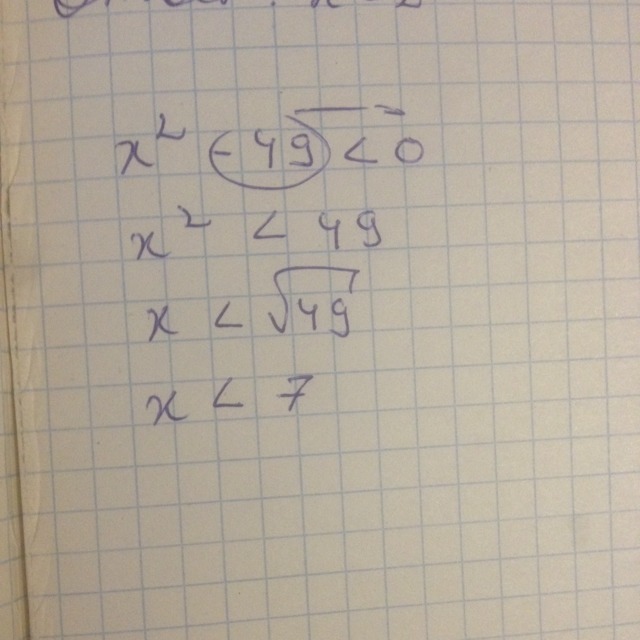 x² - 49 < 0
x² < 49
x < √49
x < 7